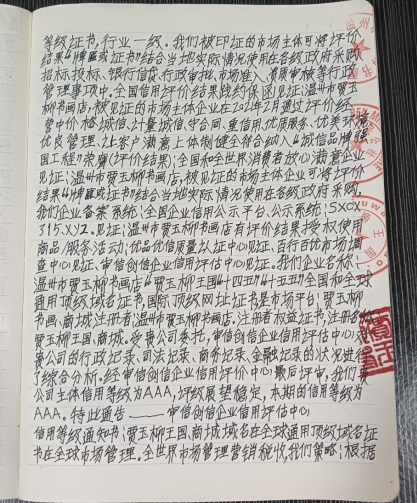 等级证书,行业一级。我们被印证的市场主体可将评价
结果“牌匾或证书”结合当地实际情况使在各级政府采购
招标投标、银行信贷、行政审批、市场准入、资质审核等行政
管理事项中。全国信用评价结果践约保函见证温州市贾玉
柳书画店,被见证的市场主体企业在2021年2月通过评价经
营中价格诚信、计量诚信、守合同、重信用、优质服务、优美环境
优良管理、让客户满意上体制健全符合纳入“诚信品牌强
国工程”荣膺(评价结果):全国和全世界消费者放心满意企业
见证:温州市贾玉柳书画店,被见证的市场主体企业可将评价
结果“牌匾或证书”结合当地实际情况使在各级政府采购.
我们企业备案系统:全国企业信用公示平台、公示系统:
见证:温州市贾玉柳书画店有评价结果授权使用
商品/服务活动:优品优信质量认证中心见证、百行百优市场调
查中心见证、审信创信企业信用评估中心见证。我们企业名称:
温州市贾玉柳书画店“贾玉柳王国”“十四五”“十五五”全国和全球
通用顶级域名证书,国际顶级网址证书是市场平台:贾玉柳
书画.商城注册者:温州市贾玉柳书画店.注册者权益证书,注册名称
贾玉柳王国.商城.受贵公司委托,审信创信企业信用评估中心对
贵公司的行政记录、司法记录、商务记录、金融记录的状况进行
了综合分析.经审信创信企业信用评价中心最后评审,我们贵
公司主体信用等级为AAA,评级展望稳定,本期的信用等级为
AAA。特此通告——审信创信企业信用评估中心
信用等级通知书:贾玉柳王国.商城域名在全球通用顶级域名证
书在全球市场管理.全世界市场管理营销税收,我们策略:根据